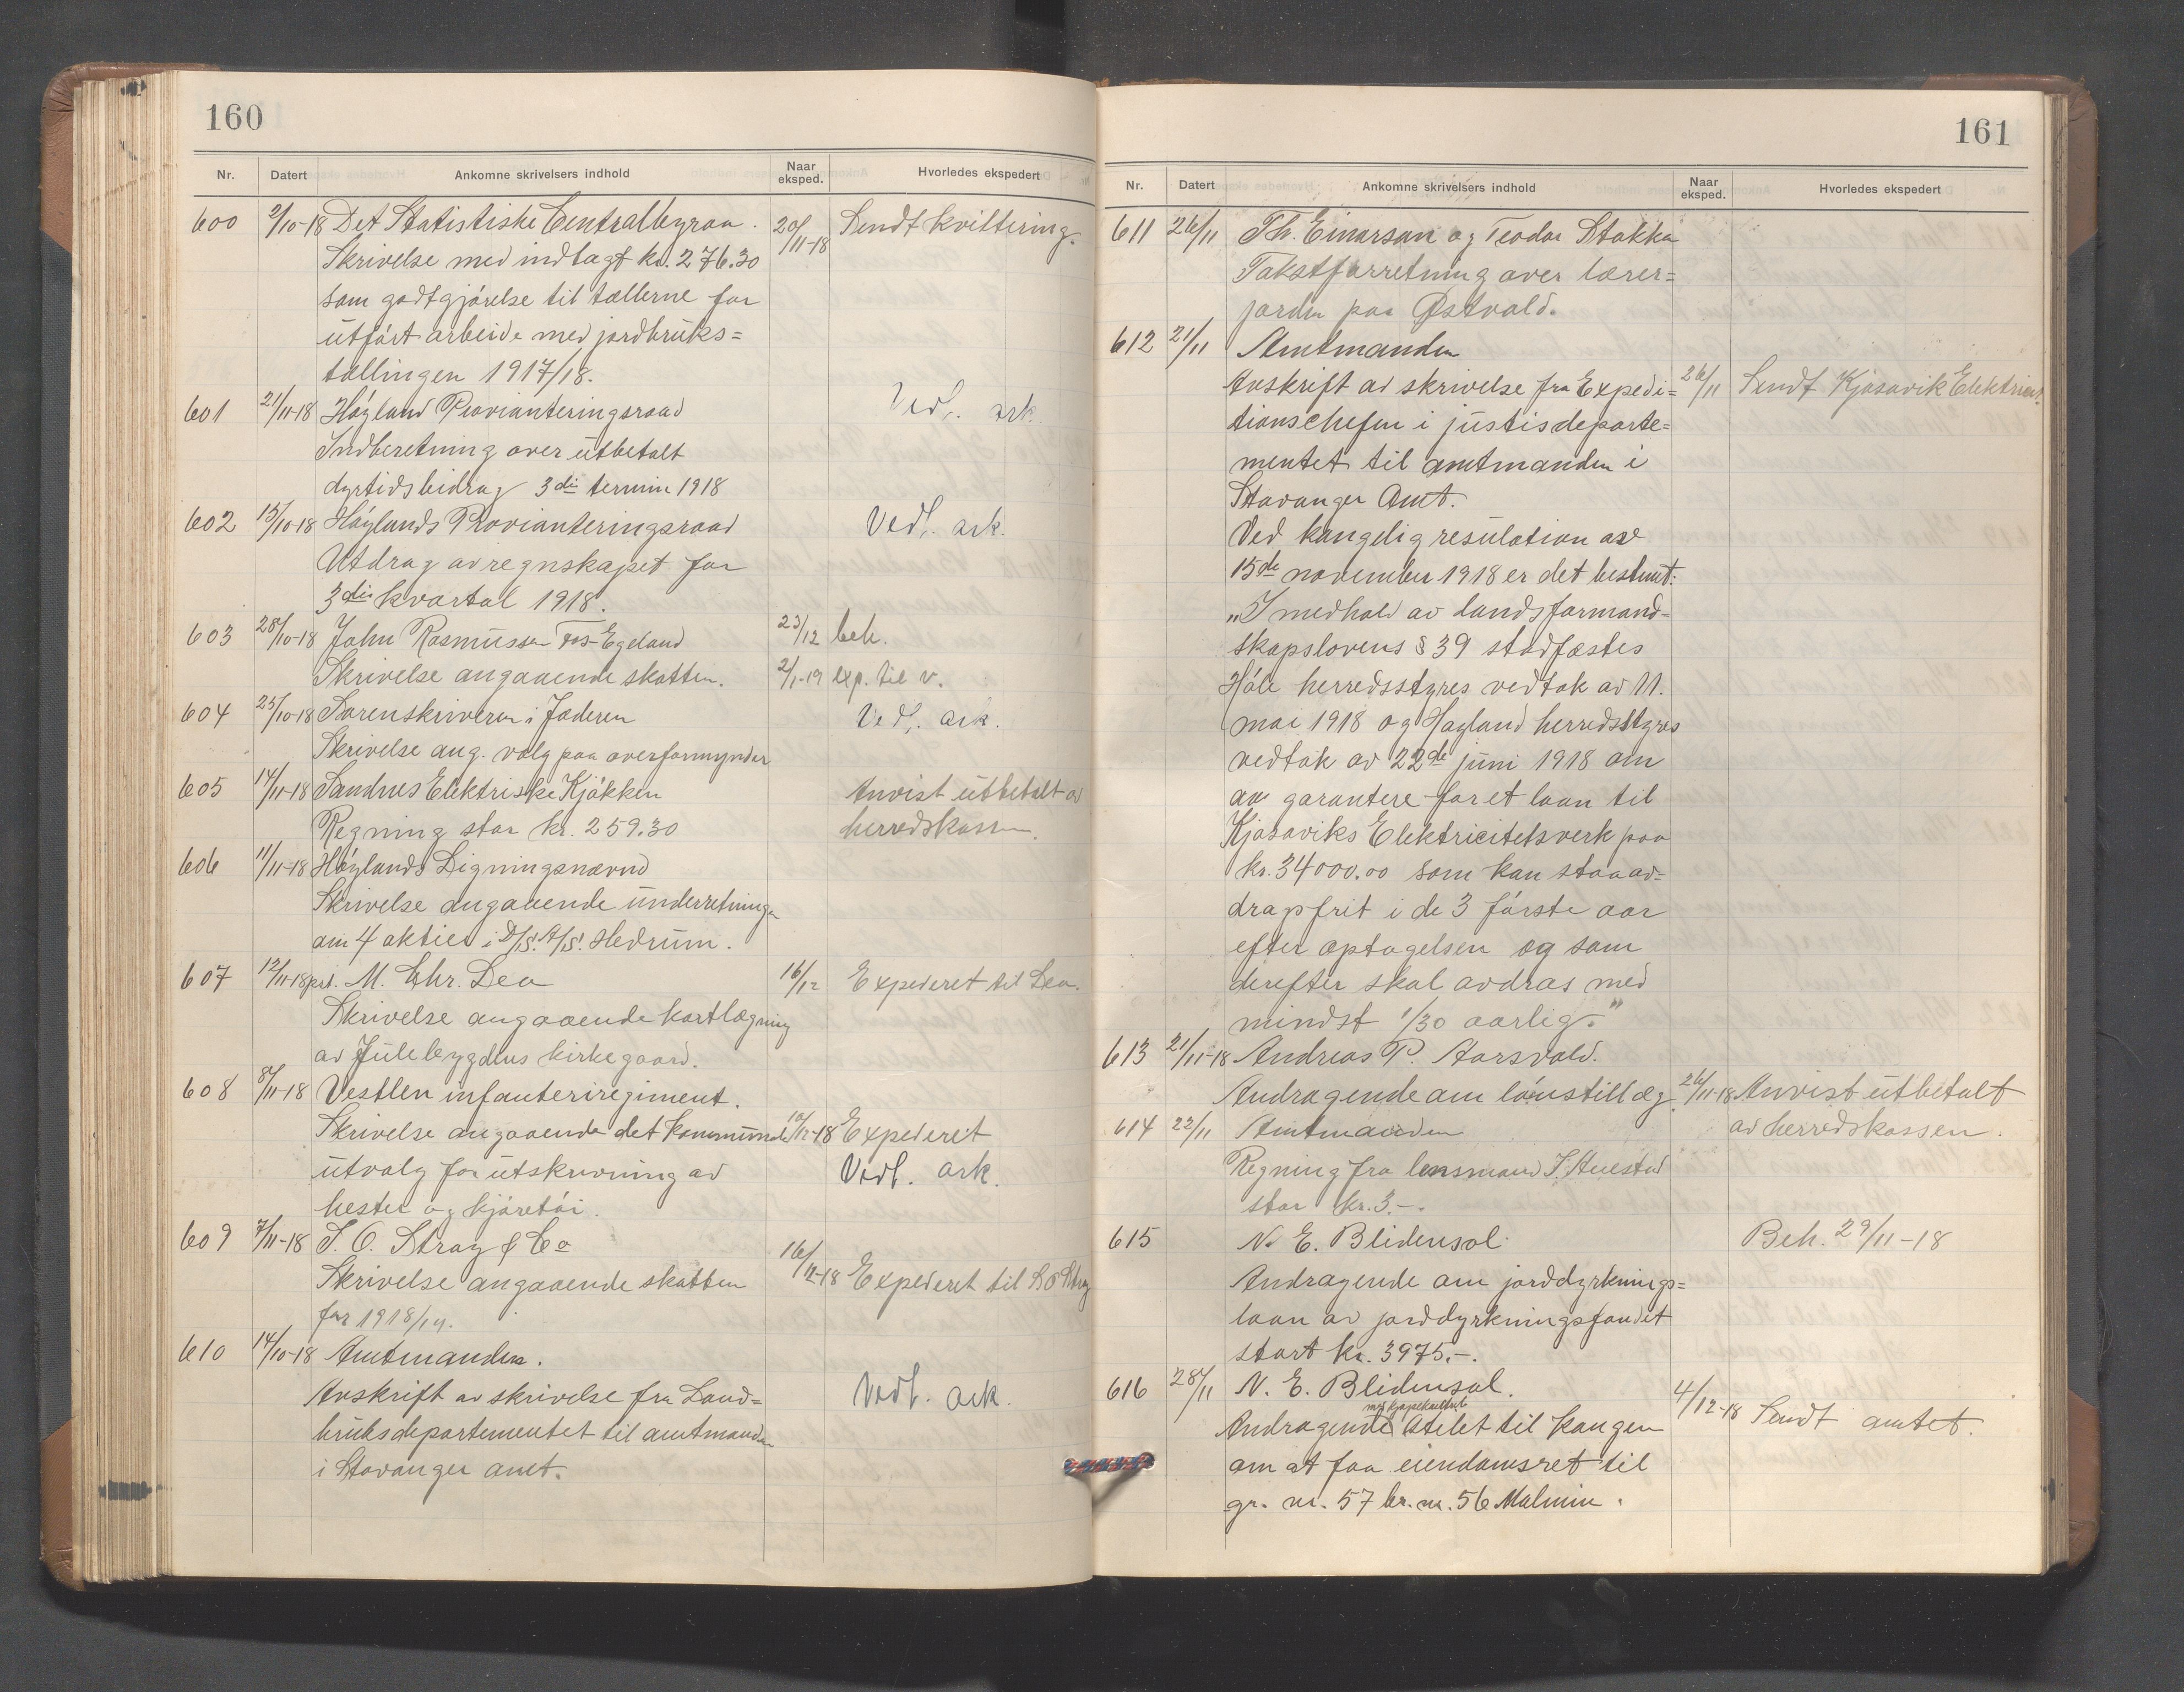 160
Nr. Datert Ankomne skrivelsers indhold Naar eksped. Hvorledes ekspedert
600 2/10-18 Det Statistiske Centralbyraa. 20/11-18 Sendt kvittering.
Skrivelse med indlagt kr. 276.30
som godtgjörelse til tællerne for
utfört arbeide med jordbruks=
tællingen 1917/18.
601 21/11-18 Höyland Provianteringsraad Vedl. ark.
Indberetning over utbetalt
dyrtidsbidrag 3die termin 1918
602 15/10-18 Höylands Provianteringsraad Vedl. ark.
Utdrag av regnskapet for
3die kvartal 1918.
603 28/10-18 John Rasmussen Fos-Egeland 23/12 beh.
Skrivelse angaaende skatten. 2/1-19 exp. til v.
604 25/10-18 Sorenskriveren i Jæderen Vedl. ark.
Skrivelse ang. valg paa overformynder
605 14/11-18 Sandnes Elektriske Kjökken Anvist utbetalt av
Regning stor kr. 259.30 herredskassen.
606 11/11-18 Höylands Ligningsnævnd
Skrivelse angaaende underretninger
om 4 aktier i D/S. A/S. Hedrum.
607 12/11-18 M. Chr. Lea 16/12 Expederet til Lea.
Skrivelse angaaende kartlægning
av Julebygdens kirkegaard.
608 8/11-18 Vestlen infanteriregiment.
Skrivelse angaaende det kommunale 10/12-18 Expederet
utvalg for utskrivning av Vedl. ark.
hester og kjöretöi.
609 7/11-18 S. O. Stray & Co
Skrivelse angaaende skatten 16/12-18 Expederet til S O Stray
for 1918/19.
610 14/10-18 Amtmanden.
Avskrift av skrivelse fra Land= Vedl. ark.
bruksdepartementet til amtmanden
i Stavanger amt.
161
Nr. Datert Ankomne skrivelsers indhold Naar eksped. Hvorledes ekspedert
611 26/11 Th. Einarson og Teodor Stokka
Takstforretning over lærer=
jorden paa Östvold.
612 21/11 Amtmanden
Avskrift av skrivelse fra Expedi= 26/11 Sendt Kjosavik Elektricit.
tionschefen i justisdeparte=
mentet til amtmanden i
Stavanger Amt.
Ved kongelig resulotion av
15de november 1918 er det bestemt:
"I medhold av landsformand=
skapslovens § 39 stadfæstes
Höle herredsstyres vedtak av 11.
mai 1918 og Høyland herredsstyres
vedtak av 22de juni 1918 om
aa garantere for et laan til
Kjosaviks Elektricitetsverk paa
kr. 34000.00 som kan staa av=
dragsfrit i de 3 förste aar
efter optagelsen og som
derefter skal avdras med
mindst 1/30 aarlig."
613 21/11-18 Andreas P. Aarsvold.
Andragende om lönstillæg. 26/11-18 Anvist utbetalt
614 22/11 Amtmanden av herredskassen.
Regning fra lensmand T. Auestad
stor kr. 3.-.
615 N. E. Blidensol. Beh. 29/11-18
Andragende om jorddyrknings=
laan av jorddyrkningsfondet
stort kr. 3975.-.
616 28/11 N. E. Blidensol. 4/12-18 Sendt amtet.
med kjøpekontrakt
Andragende stilet til kongen
om at faa eiendomsret til
gr. nr. 57 br. nr. 56 Malmin.